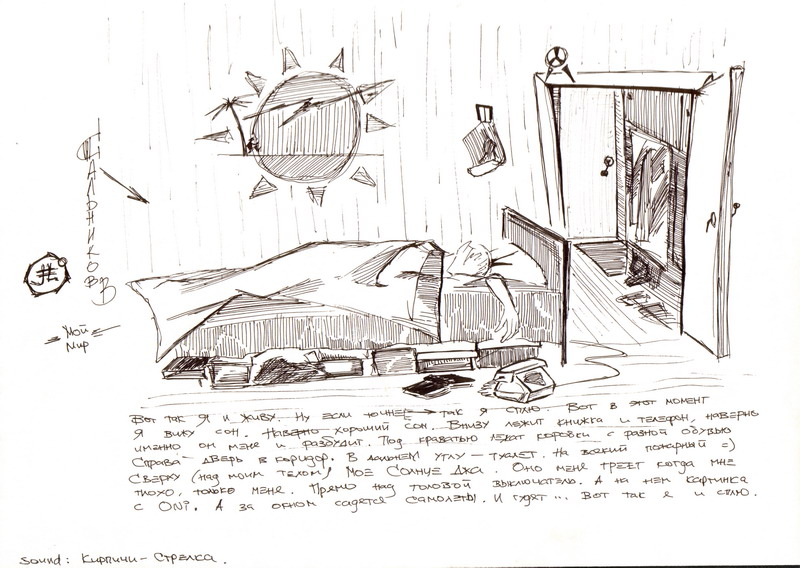 Сальников В
Мой
Мир
Вот так я и живу. Ну если точнее → так я сплю. Вот в этот момент
я вижу сон. Наверно хороший сон. Внизу лежит книжка и телефон, наверно
именно он меня и разбудит. Под краватью лежат коробки с разной обувью
Справа - дверь в коридор. В дальнем углу - туалет. На всякий пожарный =)
Сверху (над моим телом) Мое Солнце Джа. Оно меня греет когда мне
плохо, только меня. Прямо над головой выключатель. А на нем картинка
с ONi. А за окном садятся самолеты. И гудят... Вот так я и сплю.
Sound: Кирпичи - Стрелка.